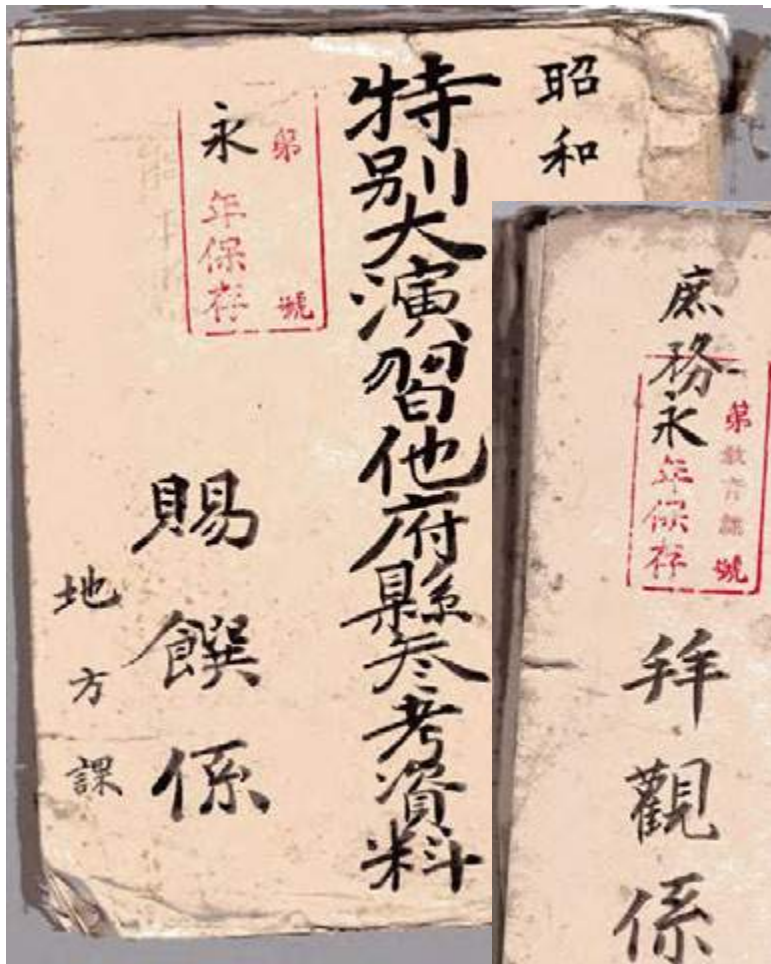 昭和
特別大演習他府縣参考資料
第 號
永年保存
賜饌係
地方課
庶務
第教育課號
永年保存
拜觀係